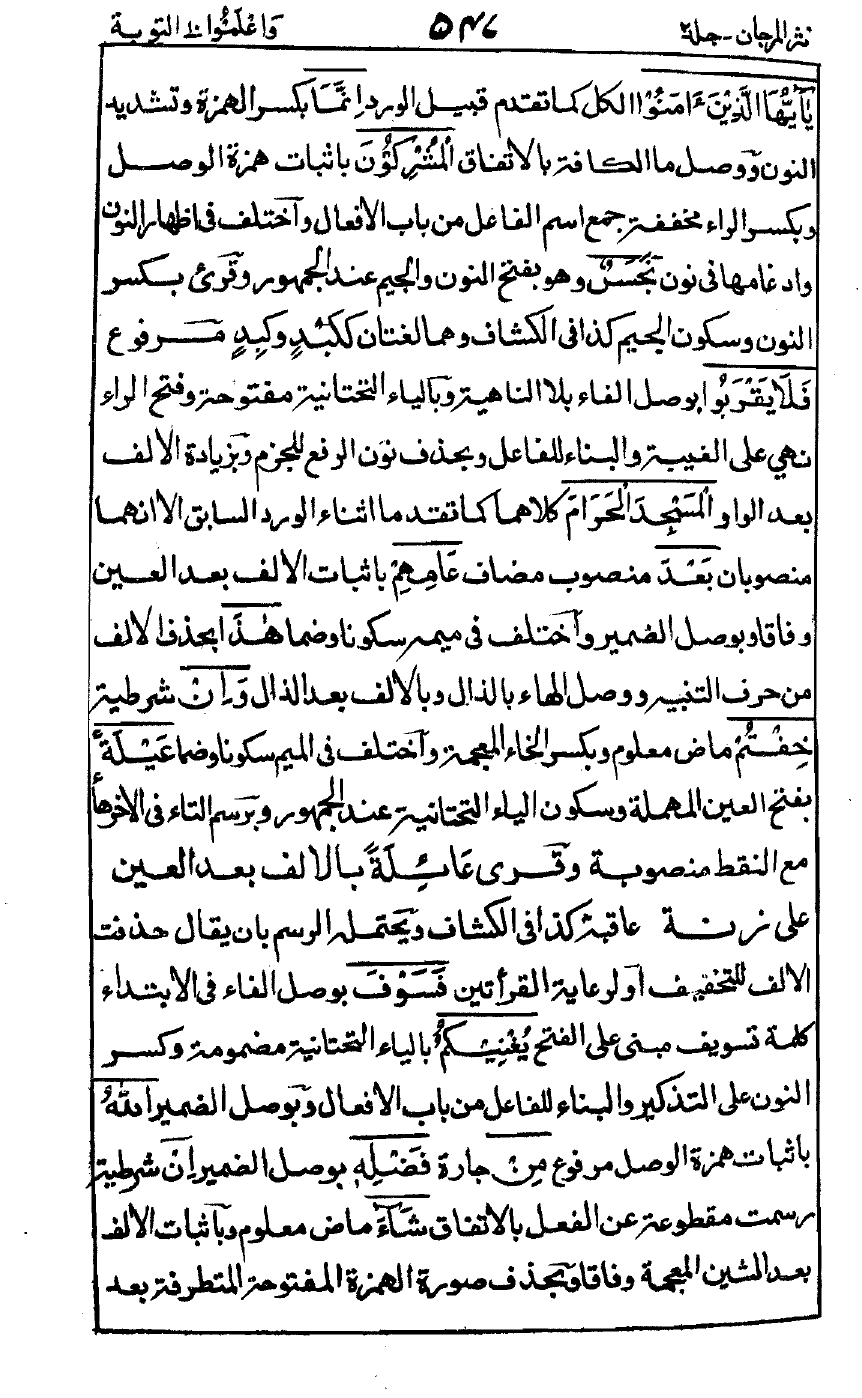 نثر المرجان - جلد ٢ ٥٤٧ واعلموا ١٠ التوبة
يٰٓاَيُّهَا الَّذِيْنَ ءَامَنُوْٓا الكل كما تقدم قبيل الورد اِنَّمَا بكسر الهمزة وتشديد
النون ووصل ما الكافة بالاتفاق الْمُشْرِكُوْنَ باثبات همزة الوصل
وبكسر الراء مخففة جمع اسم الفاعل من باب الافعال واختلف فى اظهار النون
وادغامها فى نون نَجَسٌ وهو بفتح النون والجيم عند الجمهور وقرئ بكسر
النون وسكون الجيم كذا فى الكشاف وهما لغتان ككَبْدٍ وكَبِدٍ مرفوع
فَلَا يَقْرَبُوا بوصل الفاء بلا الناهية وبالياء التحتانية مفتوحة وفتح الراء
نهي على الغيبة والبناء للفاعل وبحذف نون الرفع للجزم وبزيادة الالف
بعد الواو الْمَسْجِدَ الْحَرَامَ كلاهما كما تقدما اثناء الورد السابق الا انهما
منصوبان بَعْدَ منصوب مضاف عَامِهِمْ باثبات الالف بعد العين
وفاقا وبوصل الضمير واختلف فى ميمه سكونا وضما هٰذَا بحذف الالف
من حرف التنبيه ووصل الهاء بالذال وبالالف بعد الذال وَاِنْ شرطية
خِفْتُمْ ماض معلوم وبكسر الخاء المعجمة واختلف فى الميم سكونا وضما عَيْلَةً
بفتح العين المهملة وسكون الياء التحتانية عند الجمهور وبرسم التاء فى الاخر هاء
مع النقط منصوبة وقرى عَائِلَةً بالالف بعد العين
على زنة عاقبة كذا فى الكشاف ويحتمله الرسم بان يقال حذفت
الالف للتخفيف او لرعاية القرأتين فَسَوْفَ بوصل الفاء فى الابتداء
كلمة تسويف مبنى على الفتح يُغْنِيْكُمُ بالياء التحتانية مضمومة وكسر
النون على التذكير والبناء للفاعل من باب الافعال وبوصل الضمير اللهُ
باثبات همزة الوصل مرفوع مِنْ جارة فَضْلِهٖ بوصل الضمير اِنْ شرطية
رسمت مقطوعة عن الفعل بالاتفاق شَآءَ ماض معلوم وباثبات الالف
بعد الشين المعجمة وفاقا وبحذف صورة الهمزة المفتوحة المتطرفة بعد